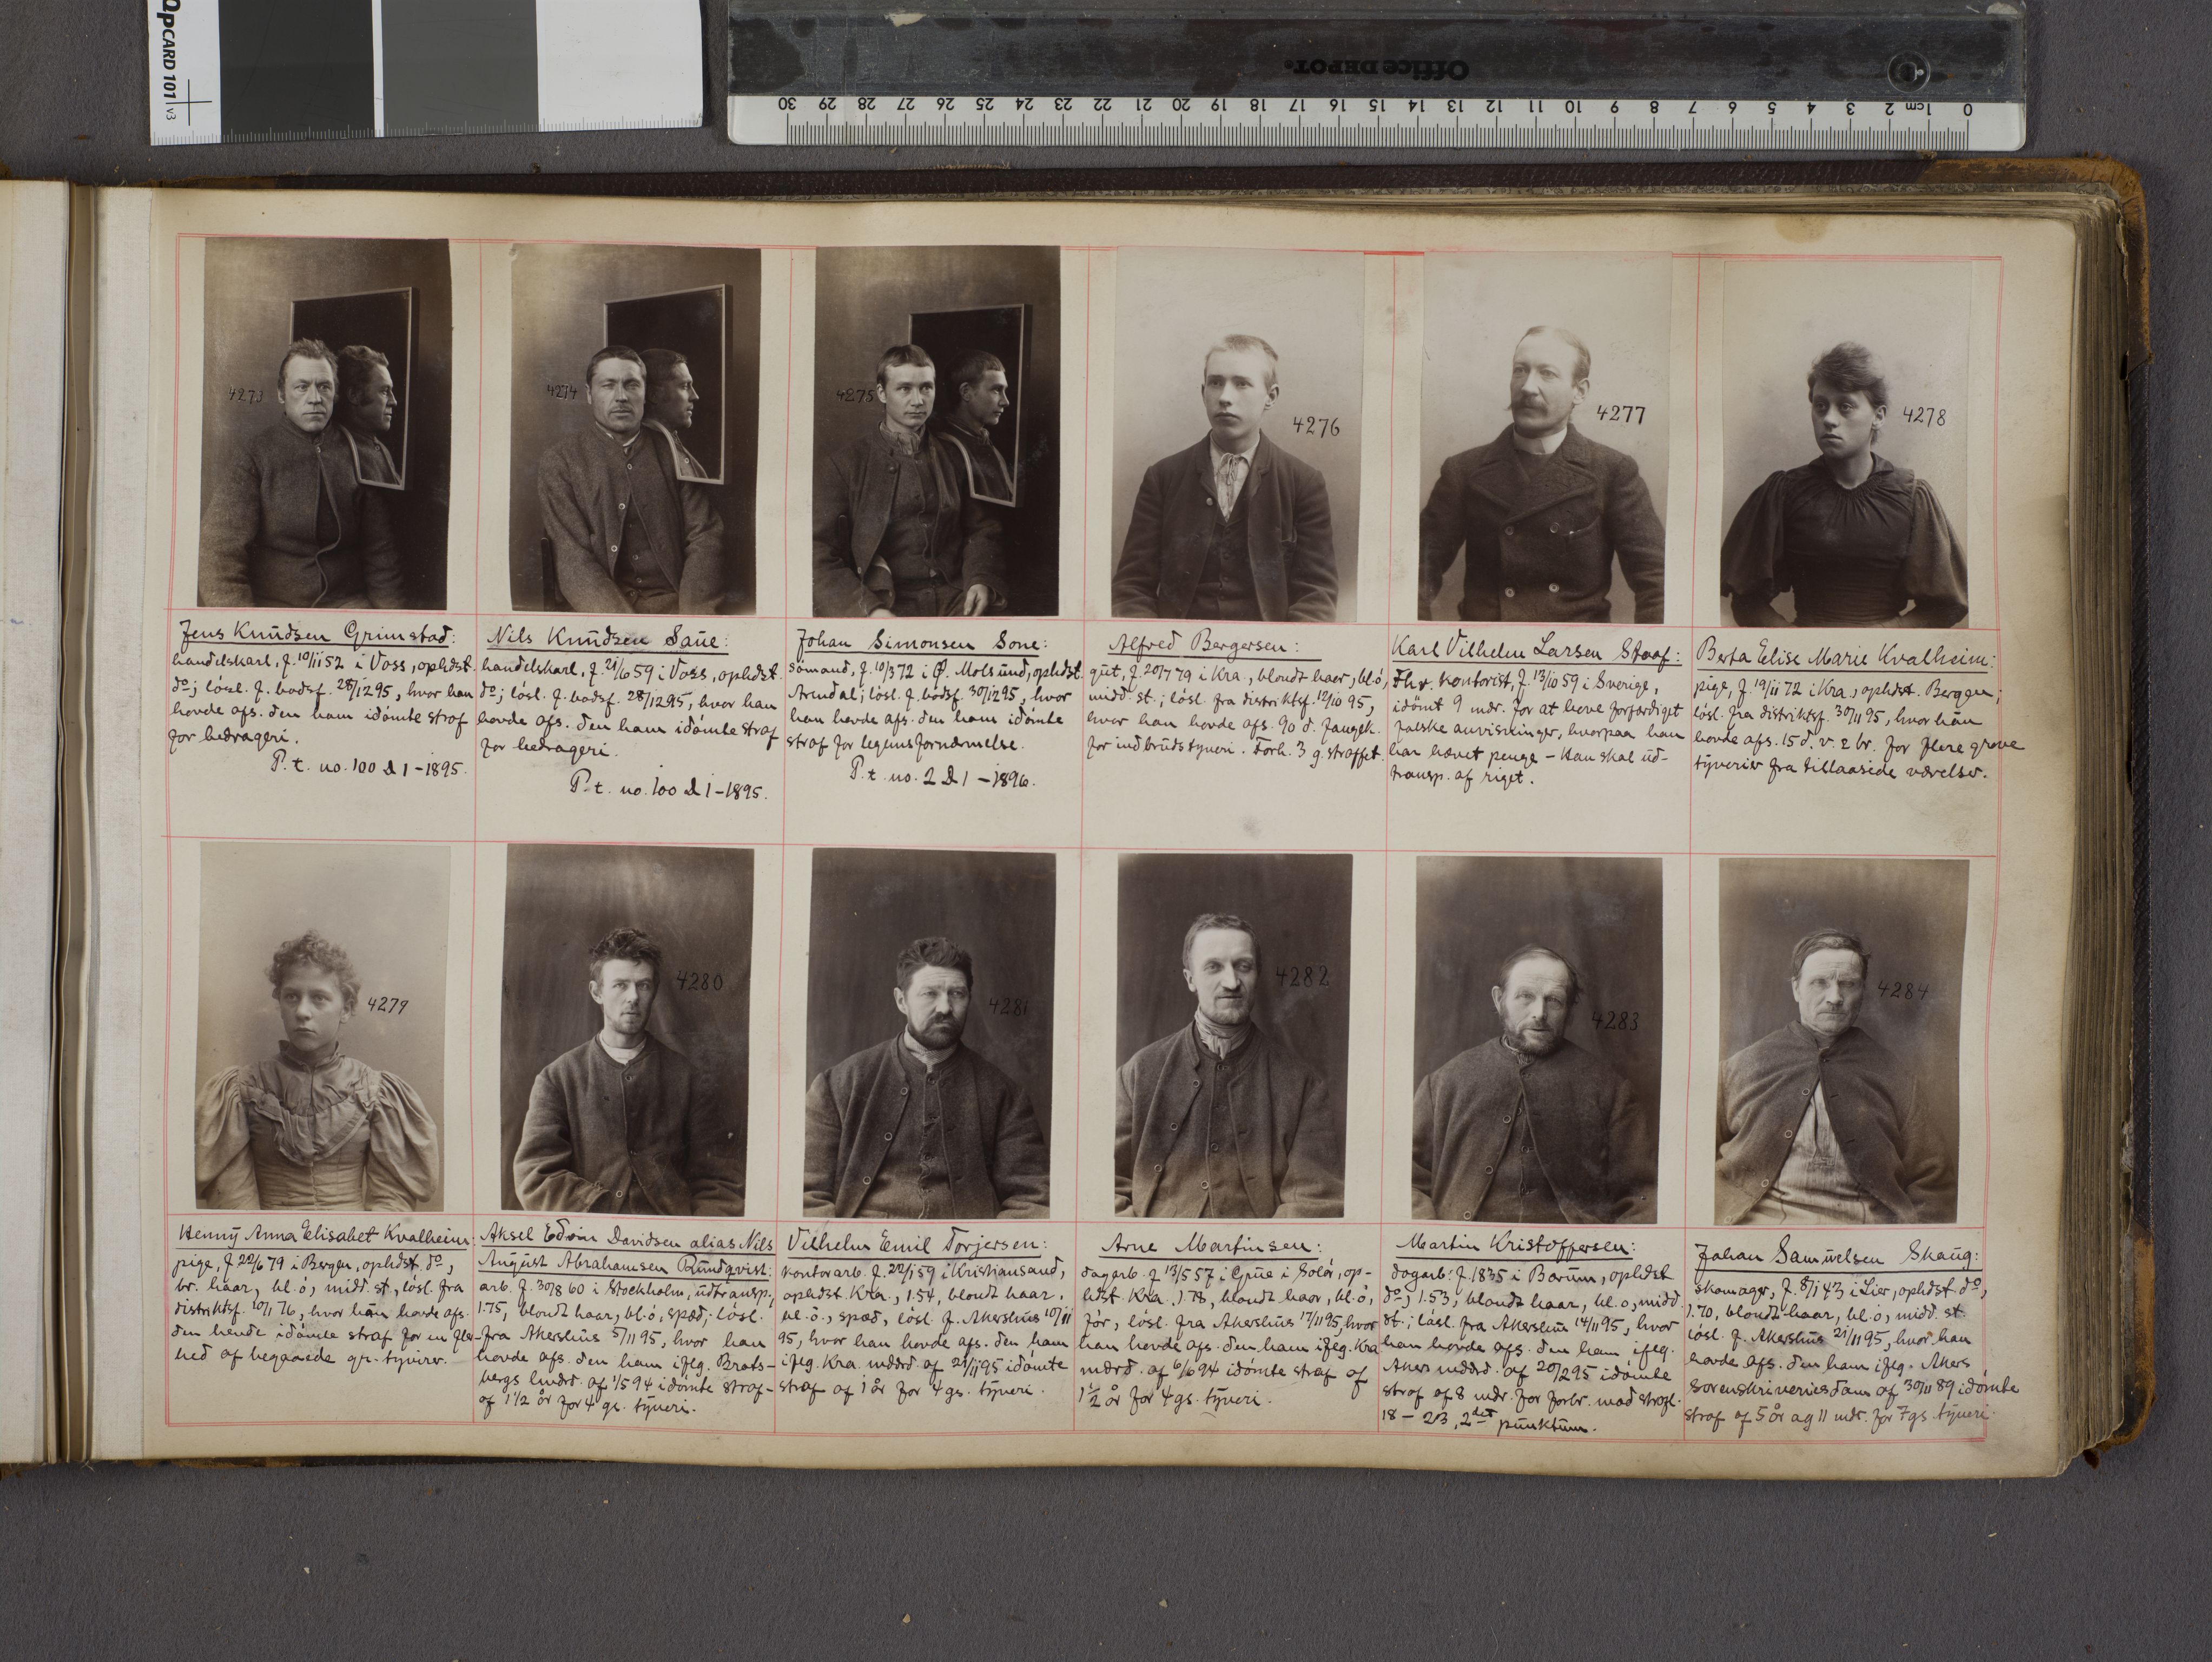 OPCARD 101 v3
Office DEPOT
30 29 28 27 26 25 24 23 22 21 20 19 18 17 16 15 14 13 12 11 10 9 8 7 6 5 4 3 2 1 cm 0
4273
4274
4275
4276
4277
4278
Jens Knudsen Grimstad:
handelskarl, f. 10/11 52 i Voss, opholdst.
do; løsl. f. bodsf. 28/12 95, hvor han
havde afs. den ham idømte straf
for bedrageri.
P.t. no. 100 D 1 - 1895.
Nils Knudsen Saue:
handelskarl, f. 21/6 59 i Voss, opholdst.
do; løsl. f. bodsf. 28/12 95, hvor han
havde afs. den ham idømte straf
for bedrageri.
P.t. no. 100 D 1 - 1895.
Johan Simonsen Sone:
sømand, f. 10/3 72 i Ø. Molsund, opholdst.
Arendal; løsl. f. bodsf. 30/12 95, hvor
han havde afs. den ham idømte
straf for legemsfornærmelse.
P.t. no. 2 D 1 - 1896.
Alfred Bergersen:
gut, f. 20/7 79 i Kra., blondt haar, bl. ö,
midd. st.; løsl. fra distriktsf. 12/10 95,
hvor han havde afs. 90 d. fængsl.
for indbrudstyveri. Forh. 3 g. straffet.
Karl Vilhelm Larsen Staaf:
Fhv. kontorist, f. 13/10 59 i Sverige,
idømt 9 mdr. for at have forfærdiget
falske anvisninger, hvorpaa han
har hævet penge - Han skal ud-
transp. af riget.
Berta Elise Marie Kvalheim:
pige, f. 19/11 72 i Kra., opholdst. Bergen;
løsl. fra distriktsf. 30/11 95, hvor hun
havde afs. 15 d. v. & br. for flere grove
tyverier fra tillaasede værelser.
4279
4280
4281
4282
4283
4284
Henny Anna Elisabet Kvalheim:
pige, f. 22/6 79 i Bergen, opholdst. do,
br. haar, bl. ö, midd. st., løsl. fra
distriktsf. 10/1 76, hvor hun havde afs.
den hende idømte straf for en fler
hed af begaaede gr. tyvirer.
Aksel Edvin Davidsen alias Nils
August Abrahamsen Rundqvist:
arb. f. 30/8 60 i Stockholm, udtransp.,
1.75, blondt haar, bl. ö, spæd; løsl.
fra Akershus 5/11 95, hvor han
havde afs. den ham iflg. Brats-
bergs lmdrd. af 1/5 94 idømte straf
af 1 1/2 år for 4 gs. tyveri.
Vilhelm Emil Torjersen:
kontorarb. f. 22/1 59 i Kristiansand,
opholdst. Kra., 1.54, blondt haar,
bl. ö., spæd, løsl. f. Akershus 10/11
95, hvor han havde afs. den ham
iflg. Kra. mddrd. af 21/1 95 idømte
straf af 1 år for 4 gs. tyveri.
Arne Martinsen:
dagarb. f. 13/5 57 i Grue i Solør, op-
holdst. Kra., 1.78, blondt haar, bl. ö,
før, løsl. fra Akershus 17/11 95, hvor
han havde afs. den ham iflg. Kra
mdrd. af 6/6 94 idømte straf af
1 1/2 år for 4 gs. tyveri.
Martin Kristoffersen:
dagarb. f. 1835 i Bærum, opholdst
do; 1.53, blondt haar, bl. ö, midd.
st.; løsl. fra Akershus 14/11 95, hvor
han havde afs. den ham iflg.
Akers mddrd. af 20/2 95 idømte
straf af 8 mdr. for forbr. mod strafl.
18 - 23, 2det punktum.
Johan Samuelsen Skaug:
skomager, f. 8/1 43 i Lier, opholdst. do,
1.70, blondt haar, bl. ö, midd. st.
løsl. f. Akershus 21/11 95, hvor han
havde afs. den ham iflg. Akers
sorenskriveriesdom af 30/11 89 idømte
straf af 5 år og 11 mdr. for 7 gs. tyveri.